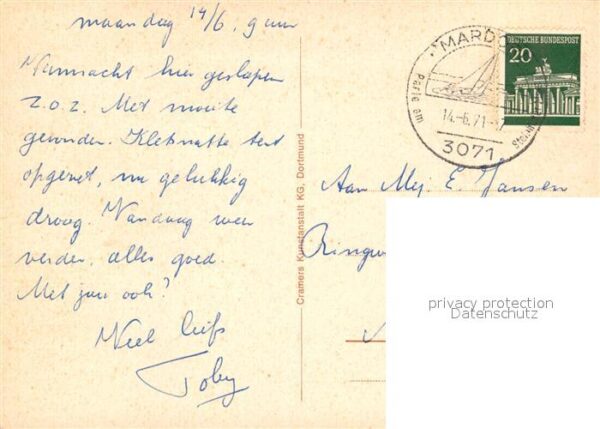 maandag 14/6, 9 uur
Vannacht hier geslapen
z.o.z. Met moeite
gevonden. Kletsnatte tent
opgezet, nu gelukkig
droog. Vandaag weer
verder, alles goed.
Met jou ook?
Veel liefs
Toby
Cramers Kunstanstalt KG, Dortmund
MARDO
Perle am
14.-6.71.-
3071
DEUTSCHE BUNDESPOST
20
Aan Mej. E. Jansen
Ringw
privacy protection
Datenschutz